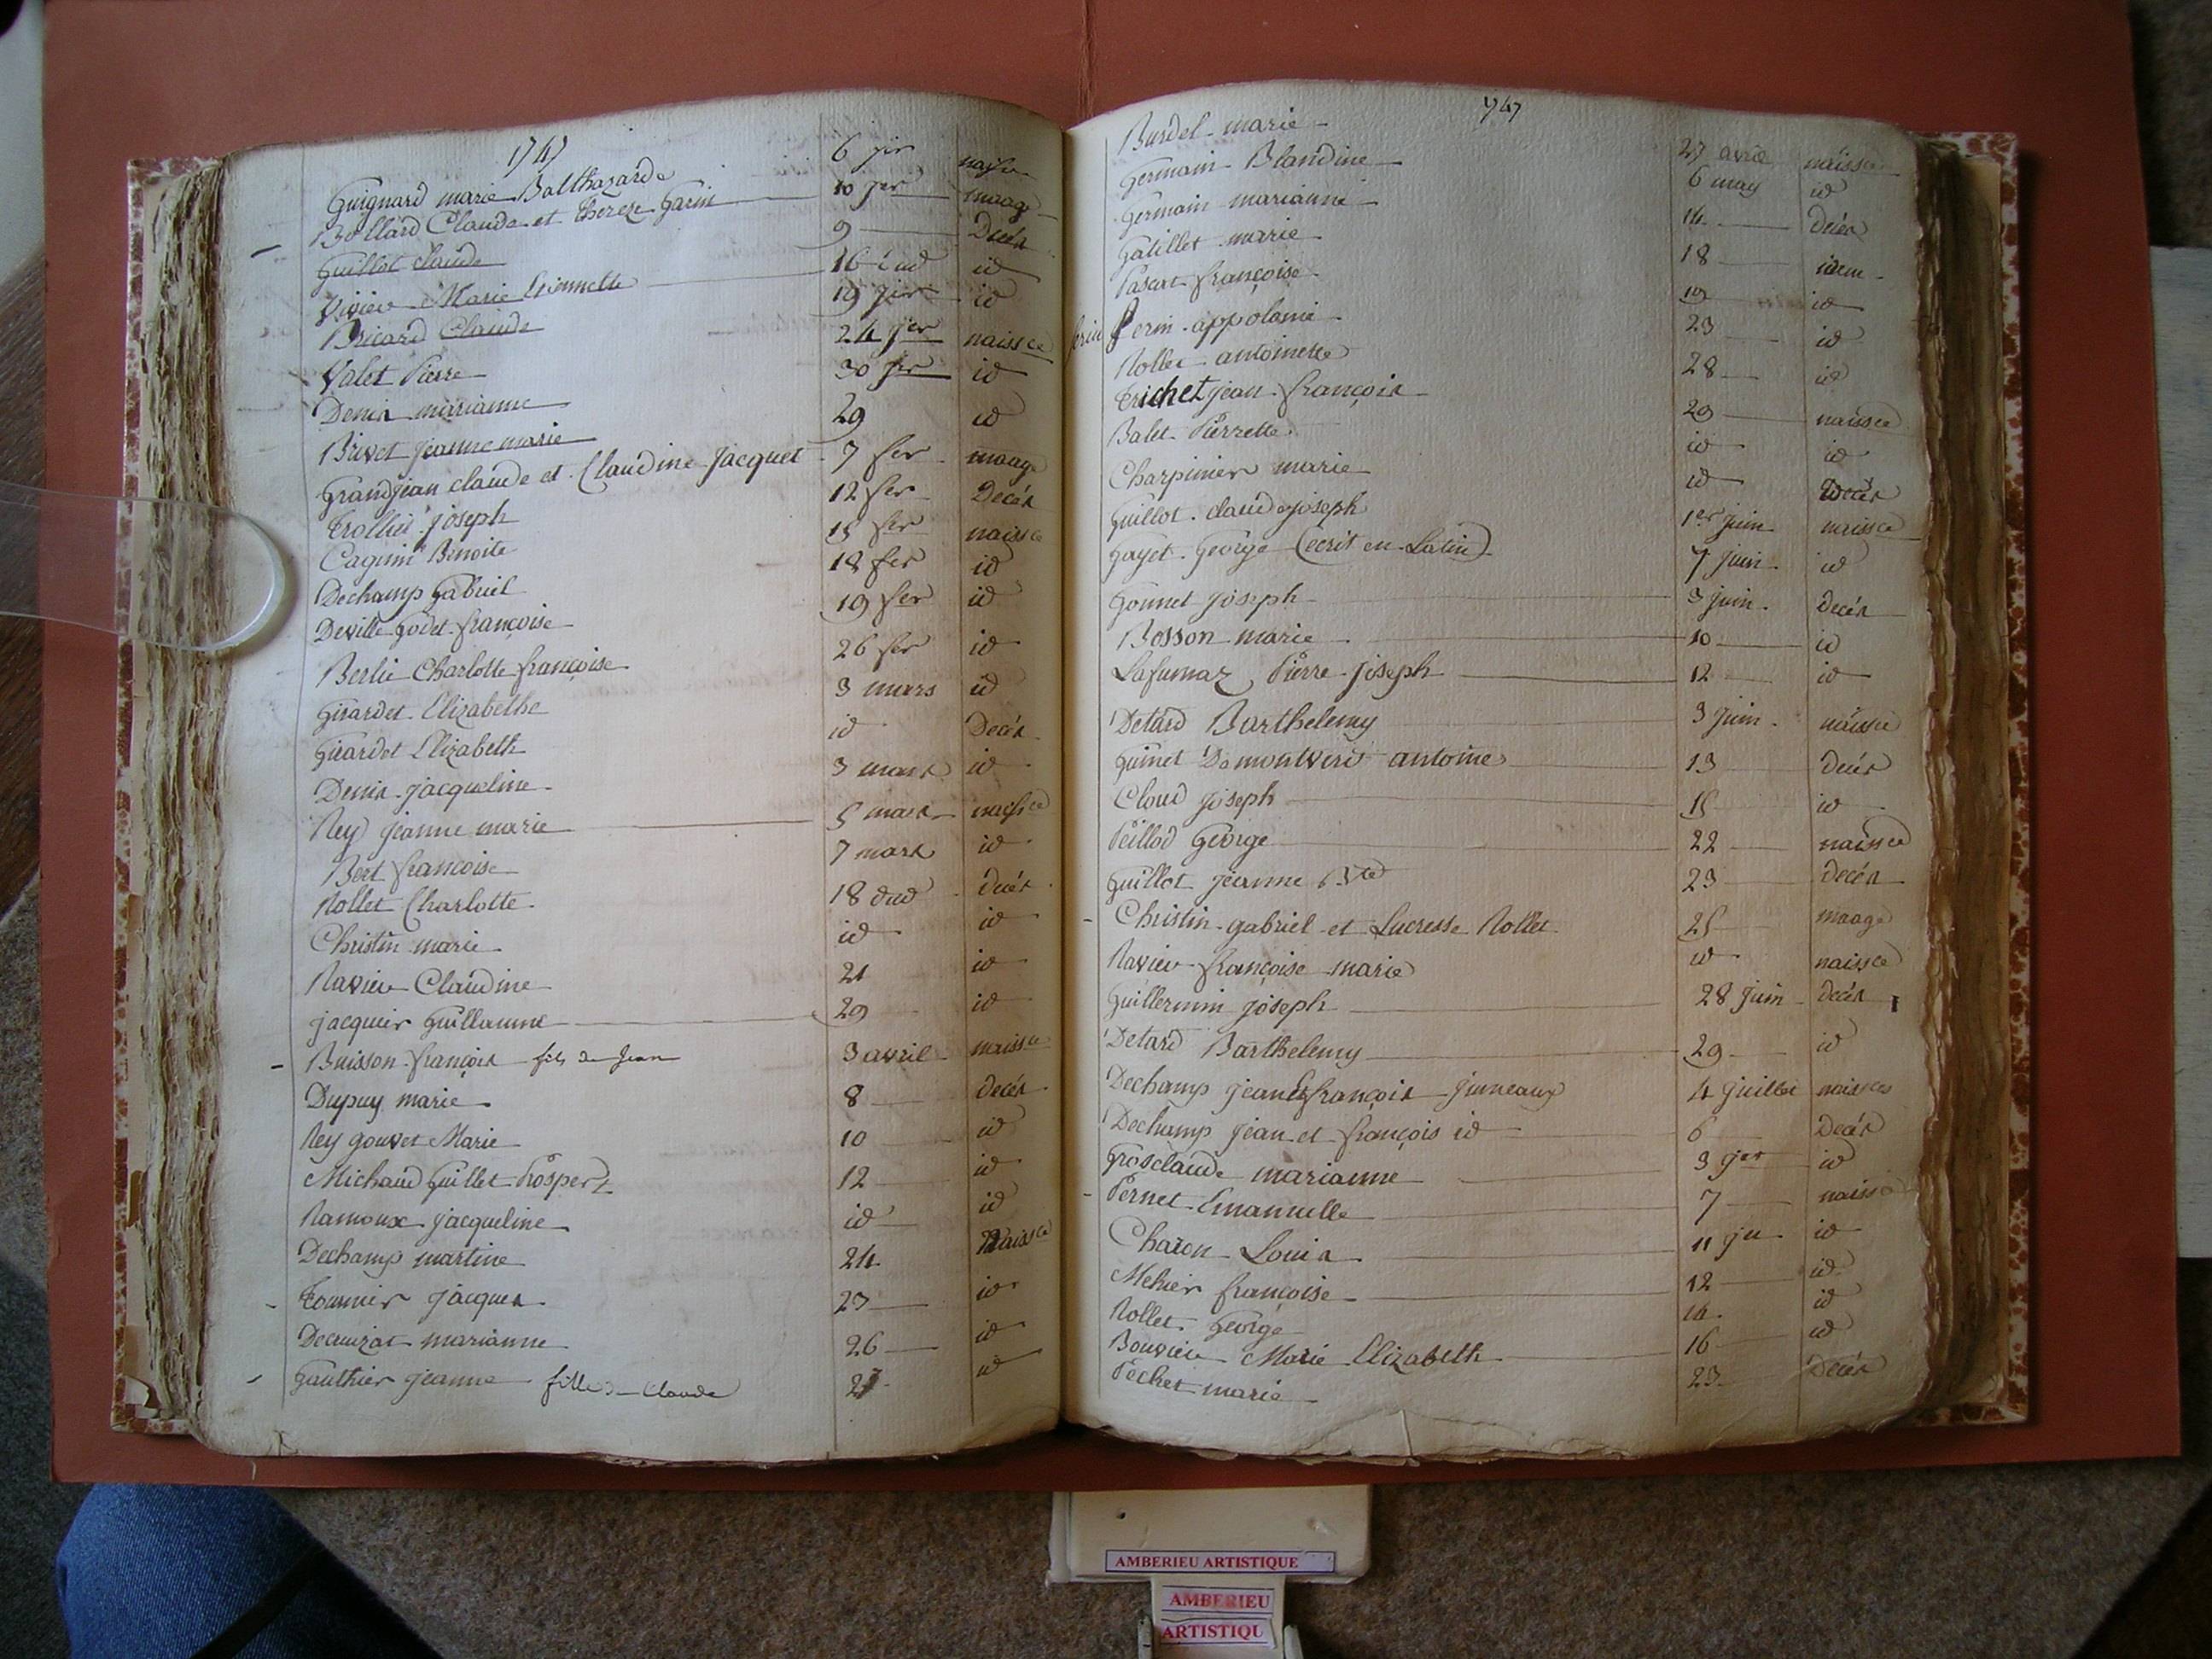 1747
Guignard marie Balthazarde 6 jer naisse
Bollard Claude et thereze Garin 10 jer maage
Guillot claude 9 Decés
Vivier Marie 16 dud id
Bricard Claude 19 jer id
Valet Pierre 24 jer naissce
Denis marianne 30 jer id
Brivet jeanne marie 29 id
Grandjean claude et Claudine Jacquet 7 fer maage
trollier joseph 12 fer Decés
Cagnin Benoite 15 fer naissce
Dechamp Gabriel 18 fer id
Deville godet françoise 19 fer id
Berlie Charlotte françoise 26 fer id
Girardet Elizabethe 3 mars id
Girardet Elizabeth id Decés
Denis jacqueline 3 mars id
Rey jeanne marie 5 mars naissce
Bert françoise 7 mars id
Rollet Charlotte 18 dud decés
Christin marie id id
Ravier Claudine 21 id
jacquier Guillaume 29 id
Buisson françois fils de Jean 3 avril naissce
Dupuy marie 8 decés
Rey gouvet Marie 10 id
Michaud Guillet Prospert 12 id
Ramoux jacqueline id id
Dechamp martine 24 Naissce
tournier jacques 23 id
Decruizat marianne 26 id
Gauthier jeanne fille de Claude 27 id
1747
Burdel marie 27 avril naissce
Germain Blandine 6 may id
Germain marianne 14 decés
Gatillet marie 18 idem
Pascat françoise 19 id
ferin appolanie 23 id
Rollet antoinette 28 id
trichet jean françois 29 naissce
Balet Pierrette id id
Charpinier marie id Decés
Guillot claude joseph 1er juin naissce
Gayet George (ecrit en Latin) 7 juin id
Gonnet joseph 3 juin decés
Bosson marie 10 id
Lafumaz Pierre joseph 12 id
Detard Barthelemy 3 juin naissce
Guinet Demontverd antoine 13 decés
Cloud joseph 15 id
Peillod George 22 naissce
Guillot jeanne Bte 23 decés
Christin gabriel et Lucresse Rollet 25 maage
Ravier françoise marie id naissce
Guillermin joseph 28 juin decés
Detard Barthelemy 29 id
Dechamp jean et françois jumeaux 4 juillet naissces
Dechamp jean et françois id 6 Decés
Grosclaude marianne 3 id
Pernet Emanuelle 7 naissce
Charon Louis 11 id
Mehier françoise 12 id
Rollet George 14 id
Bouvier Marie Elizabeth 16 id
Pechet marie 23 Decés
AMBERIEU ARTISTIQUE
AMBERIEU
ARTISTIQU